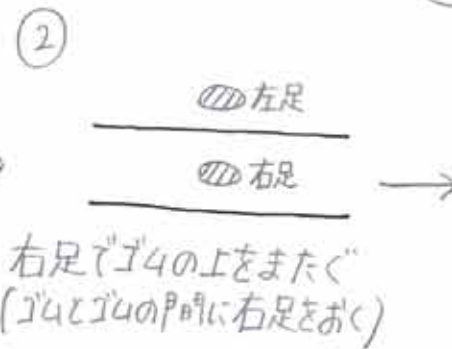 ②
左足
右足
右足でゴムの上をまたぐ
(ゴムとゴムの間に右足をおく)